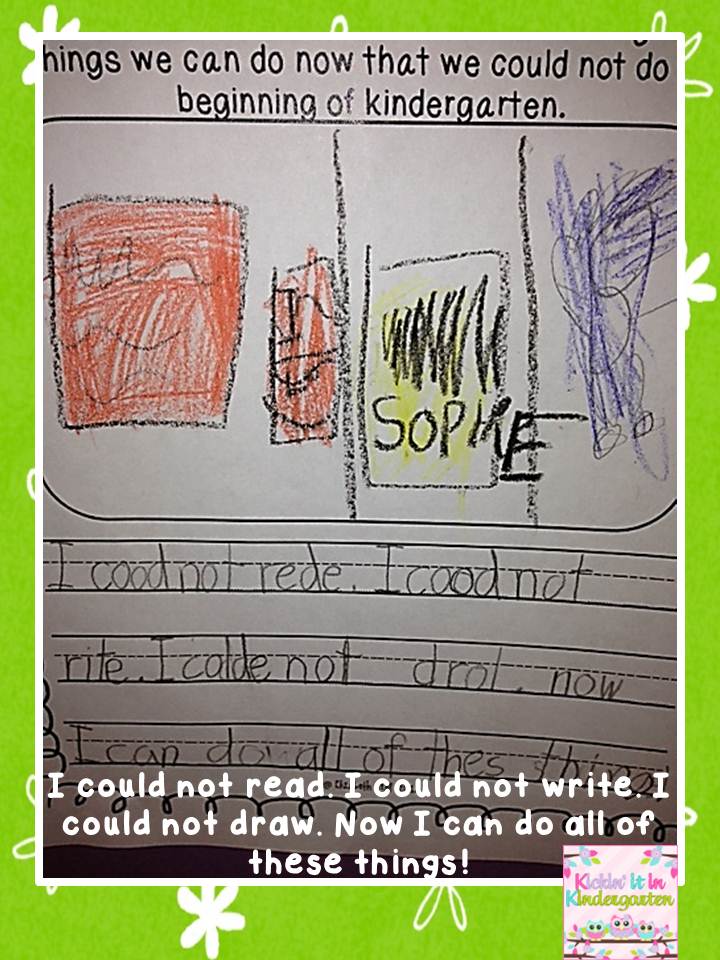 hings we can do now that we could not do
beginning of kindergarten.
SOPHE
I cood not rede. I cood not
rite. I colde not drol. now
I can do all of thes things
I could not read. I could not write. I
could not draw. Now I can do all of
these things!
Kickin' it in
Kindergarten